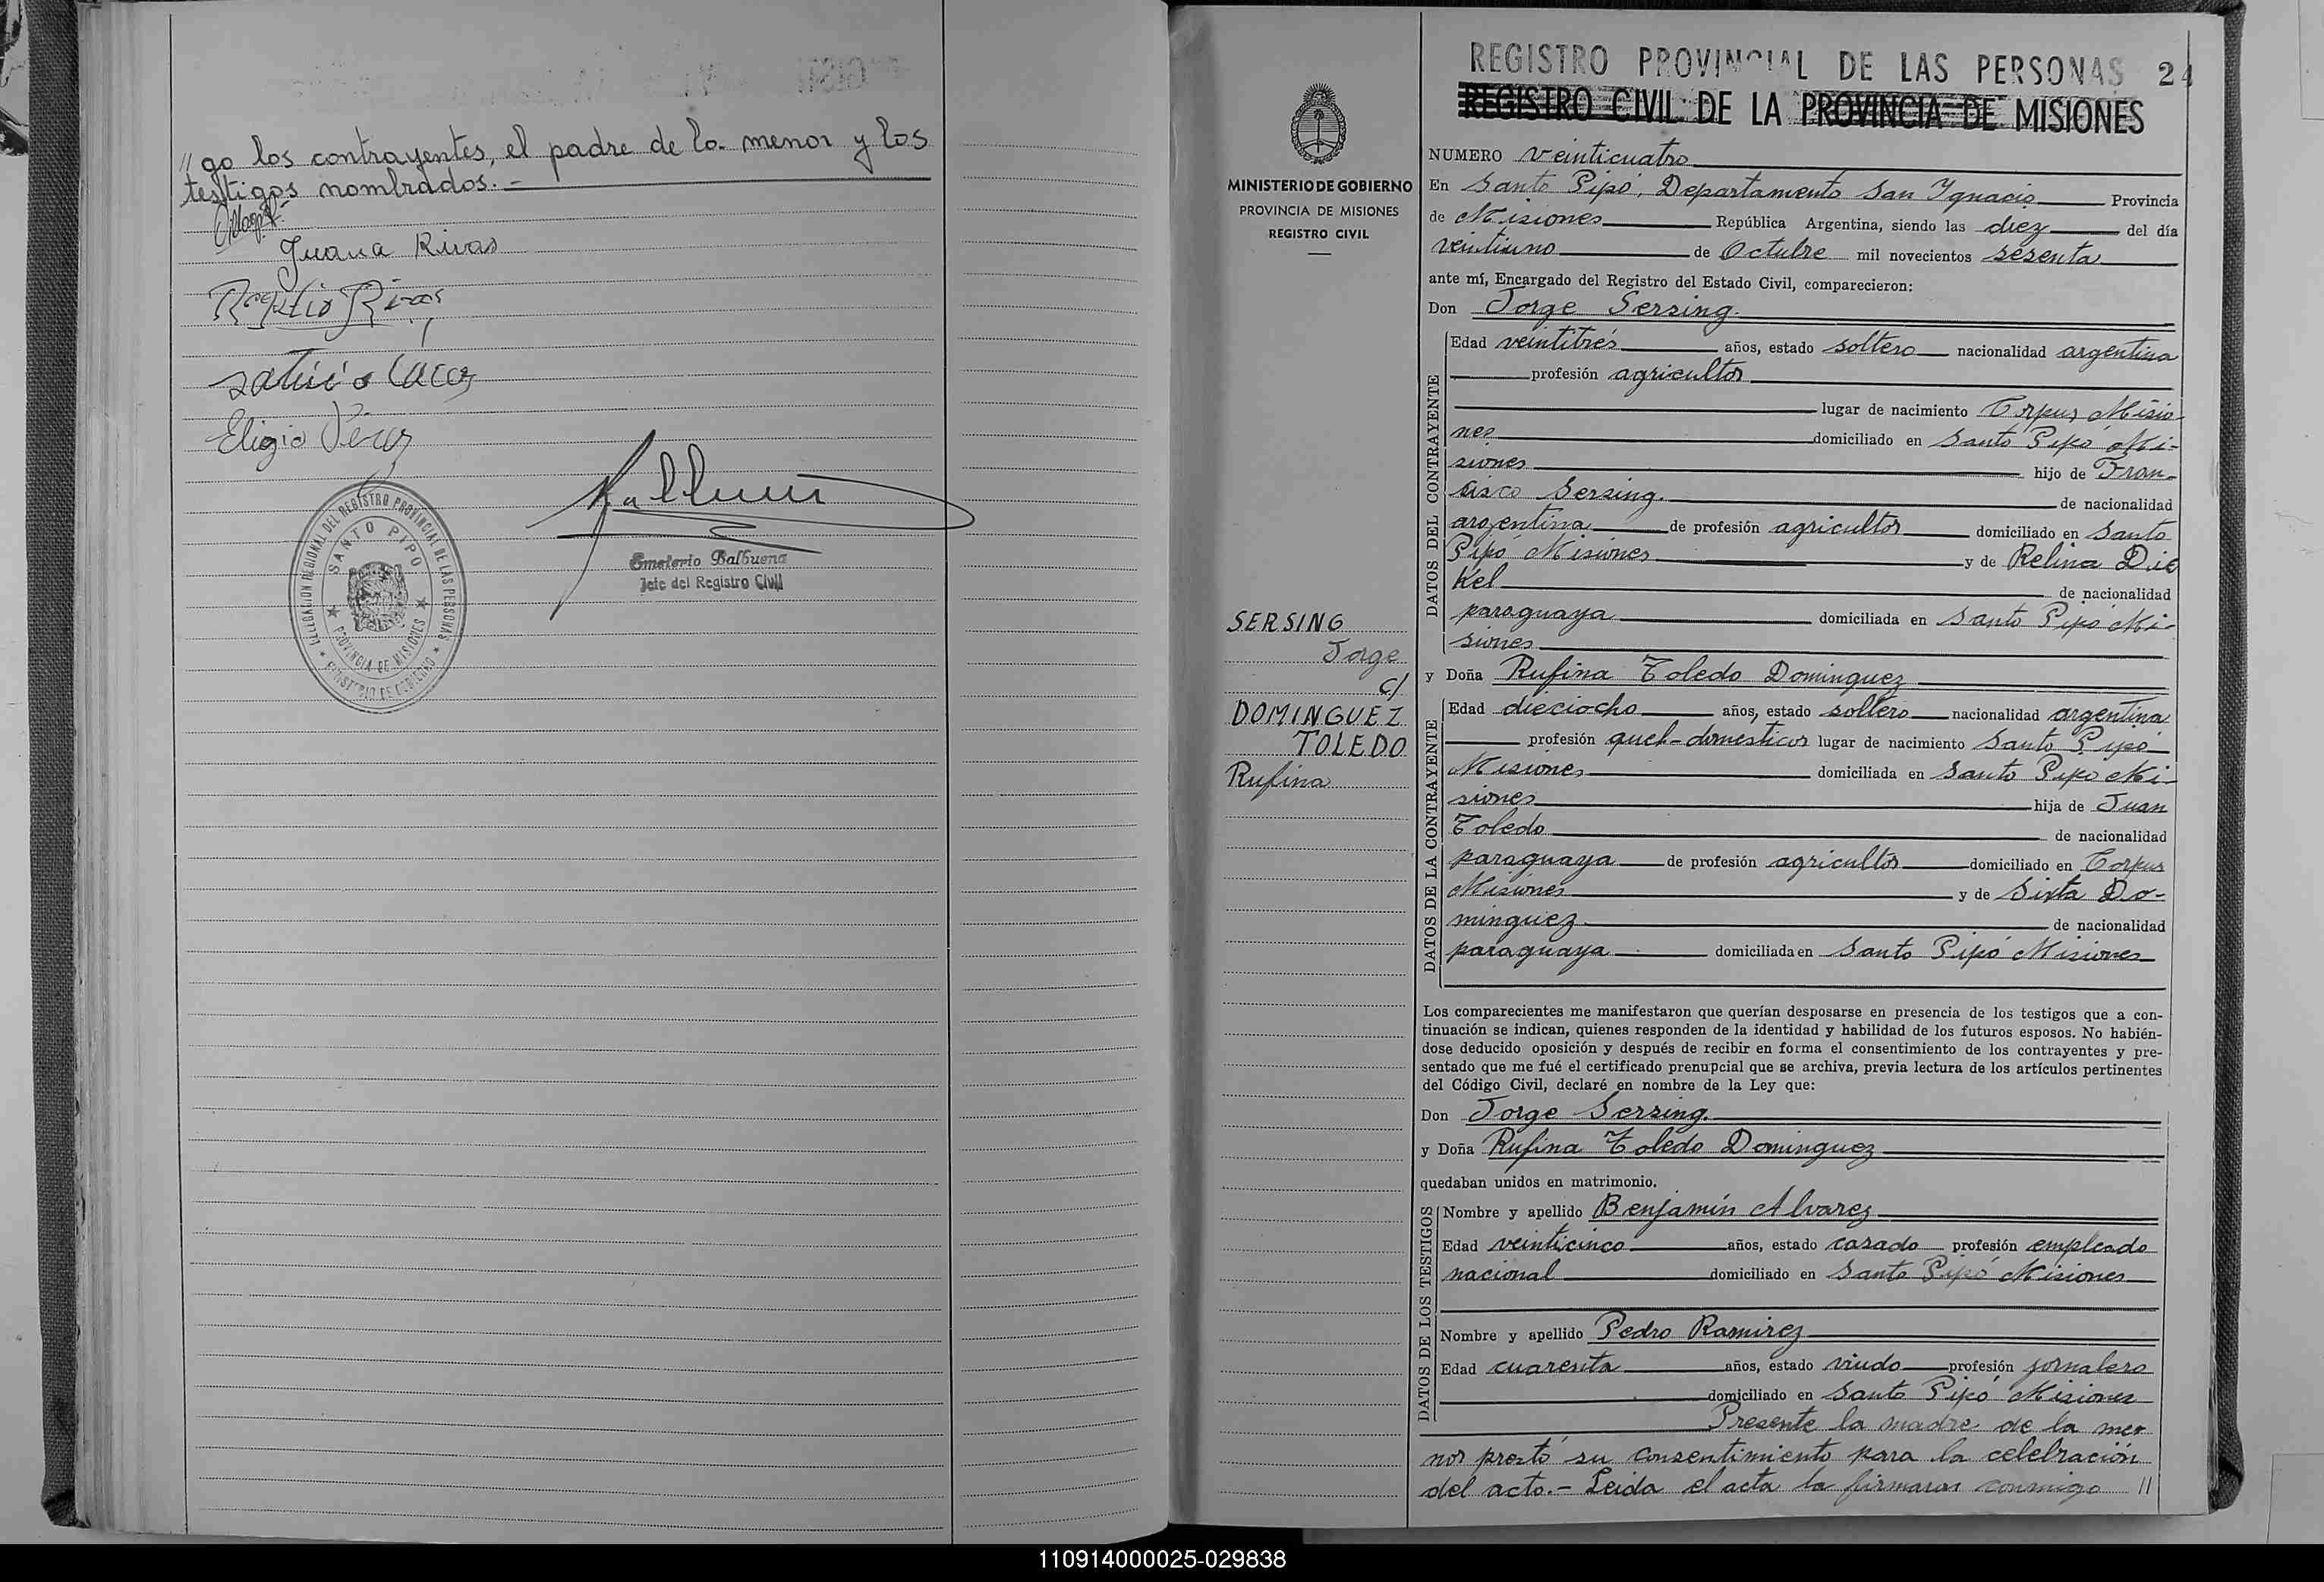 "go los contrayentes, el padre de la menor y los
testigos nombrados.-
Juana Rivas
Eligio
Emeterio Balbuena
Jefe del Registro Civil
DELEGACION REGIONAL DEL REGISTRO PROVINCIAL DE LAS PERSONAS
SANTO PIPO
PROVINCIA DE MISIONES
REGISTRO PROVINCIAL DE LAS PERSONAS 24
REGISTRO CIVIL DE LA PROVINCIA DE MISIONES
MINISTERIO DE GOBIERNO
PROVINCIA DE MISIONES
REGISTRO CIVIL
SERSING
Jorge
c/
DOMINGUEZ
TOLEDO
Rufina
NUMERO veinticuatro
En Santo Pipó, Departamento San Ygnacio Provincia
de Misiones República Argentina, siendo las diez del día
veintiuno de Octubre mil novecientos sesenta
ante mí, Encargado del Registro del Estado Civil, comparecieron:
Don Jorge Sersing.
DATOS DEL CONTRAYENTE
Edad veintitrés años, estado soltero nacionalidad argentina
profesión agricultor
lugar de nacimiento Corpus Misio-
nes domiciliado en Santo Pipó Mi-
siones hijo de Fran-
cisco Sersing. de nacionalidad
argentina de profesión agricultor domiciliado en Santo
Pipó Misiones y de Relina Die
kel de nacionalidad
paraguaya domiciliada en Santo Pipó Mi-
siones
y Doña Rufina Toledo Dominguez
DATOS DE LA CONTRAYENTE
Edad dieciocho años, estado soltero nacionalidad argentina
profesión queh-domesticos lugar de nacimiento Santo Pipó
Misiones domiciliada en Santo Pipó Mi-
siones hija de Juan
Toledo de nacionalidad
paraguaya de profesión agricultor domiciliado en Corpus
Misiones y de Sixta Do-
minguez de nacionalidad
paraguaya domiciliada en Santo Pipó Misiones
Los comparecientes me manifestaron que querían desposarse en presencia de los testigos que a con-
tinuación se indican, quienes responden de la identidad y habilidad de los futuros esposos. No habién-
dose deducido oposición y después de recibir en forma el consentimiento de los contrayentes y pre-
sentado que me fué el certificado prenupcial que se archiva, previa lectura de los artículos pertinentes
del Código Civil, declaré en nombre de la Ley que:
Don Jorge Sersing.
y Doña Rufina Toledo Dominguez
quedaban unidos en matrimonio.
DATOS DE LOS TESTIGOS
Nombre y apellido Benjamín Alvarez
Edad veinticinco años, estado casado profesión empleado
nacional domiciliado en Santo Pipó Misiones
Nombre y apellido Pedro Ramirez
Edad cuarenta años, estado viudo profesión jornalero
domiciliado en Santo Pipó Misiones
Presente la madre de la me-
nor prestó su consentimiento para la celebración
del acto.- Leida el acta la firmaron conmigo //
110914000025-029838